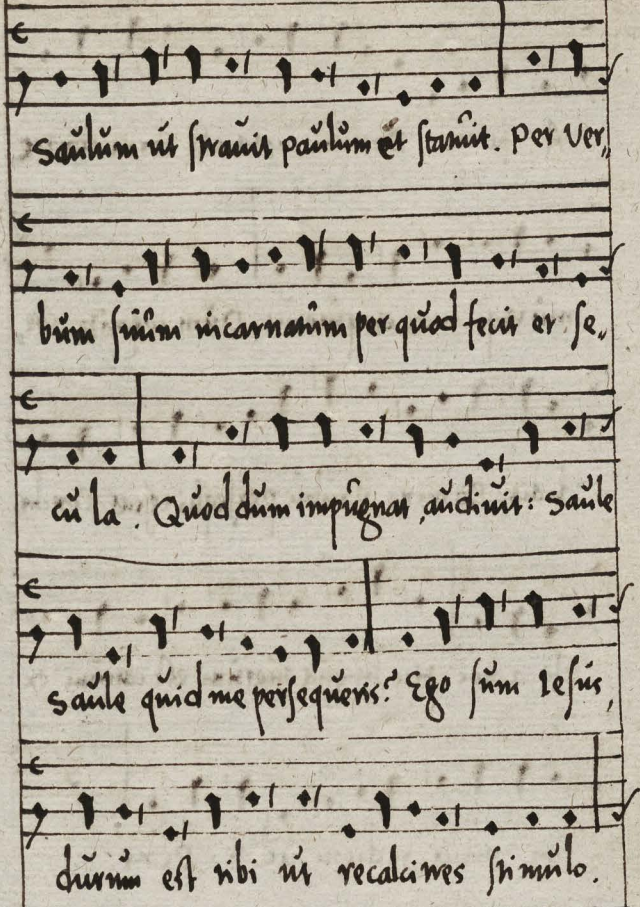 Saulum ut stravit paulum et statuit. Per Ver„
bum suum incarnatum per quod fecit et se„
cula. Quod dum impugnat, audivit: Saule
Saule quid me persequeris? Ego sum Iesus,
durum est tibi ut recalcitres stimulo.